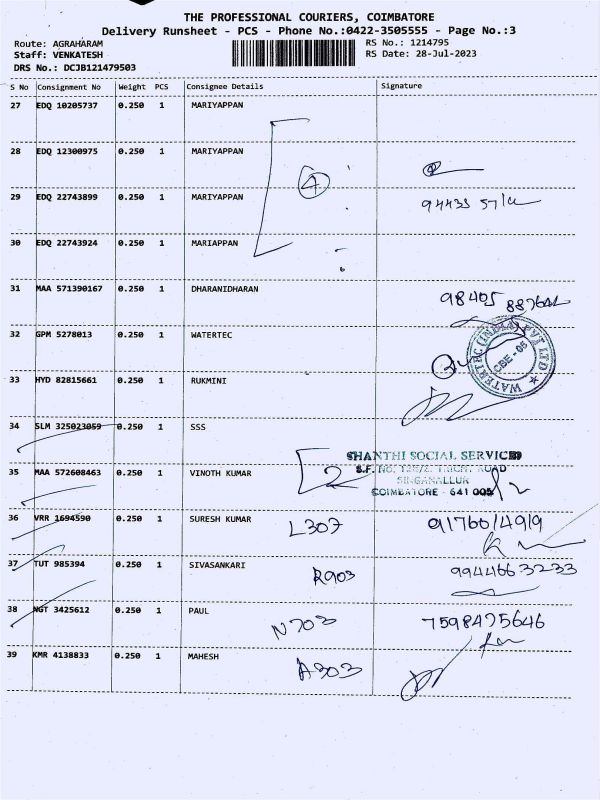 THE PROFESSIONAL COURIERS, COIMBATORE
Delivery Runsheet - PCS - Phone No.:0422-3505555 - Page No.:3
Route: AGRAHARAM RS No.: 1214795
Staff: VENKATESH RS Date: 28-Jul-2023
DRS No.: DCJB121479503
S No Consignment No Weight PCS Consignee Details Signature
27 EDQ 10205737 0.250 1 MARIYAPPAN
28 EDQ 12300975 0.250 1 MARIYAPPAN
4
29 EDQ 22743899 0.250 1 MARIYAPPAN
94435
30 EDQ 22743924 0.250 1 MARIAPPAN
31 MAA 571390167 0.250 1 DHARANIDHARAN
98405
32 GPM 5278013 0.250 1 WATERTEC
WATERTEC (INDIA) PVT LTD
CBE - 05
33 HYD 82815661 0.250 1 RUKMINI
34 SLM 325023059 0.250 1 SSS
SHANTHI SOCIAL SERVICES
35 MAA 572608463 0.250 1 VINOTH KUMAR 2
SINGANALLUR
COIMBATORE - 641 005
36 VRR 1694590 0.250 1 SURESH KUMAR L307 91760/4919
37 TUT 985394 0.250 1 SIVASANKARI R903 9944663233
38 NGT 3425612 0.250 1 PAUL N703 7598475646
39 KMR 4138833 0.250 1 MAHESH A303